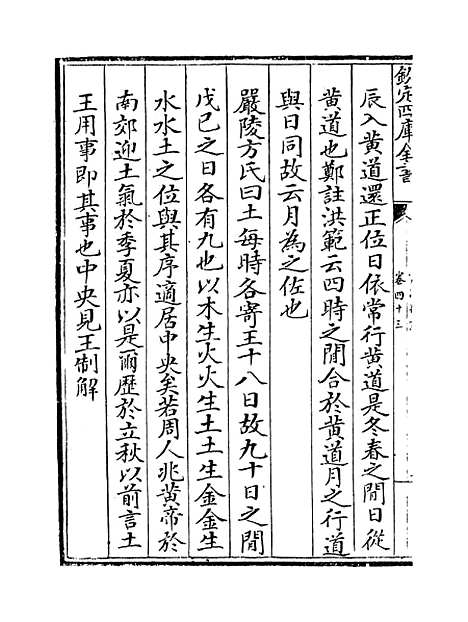 欽定四庫全書
卷四十三
辰入黄道還正位日依常行黄道是冬春之間日從
黄道也鄭註洪範云四時之間合於黄道月之行道
與日同故云月為之佐也
嚴陵方氏曰土每時各寄王十八日故九十日之間
戊巳之日各有九也以木生火火生土土生金金生
水水土之位與其序適居中央矣若周人兆黄帝於
南郊迎土氣於季夏亦以是爾歴於立秋以前言土
王用事即其事也中央見王制解